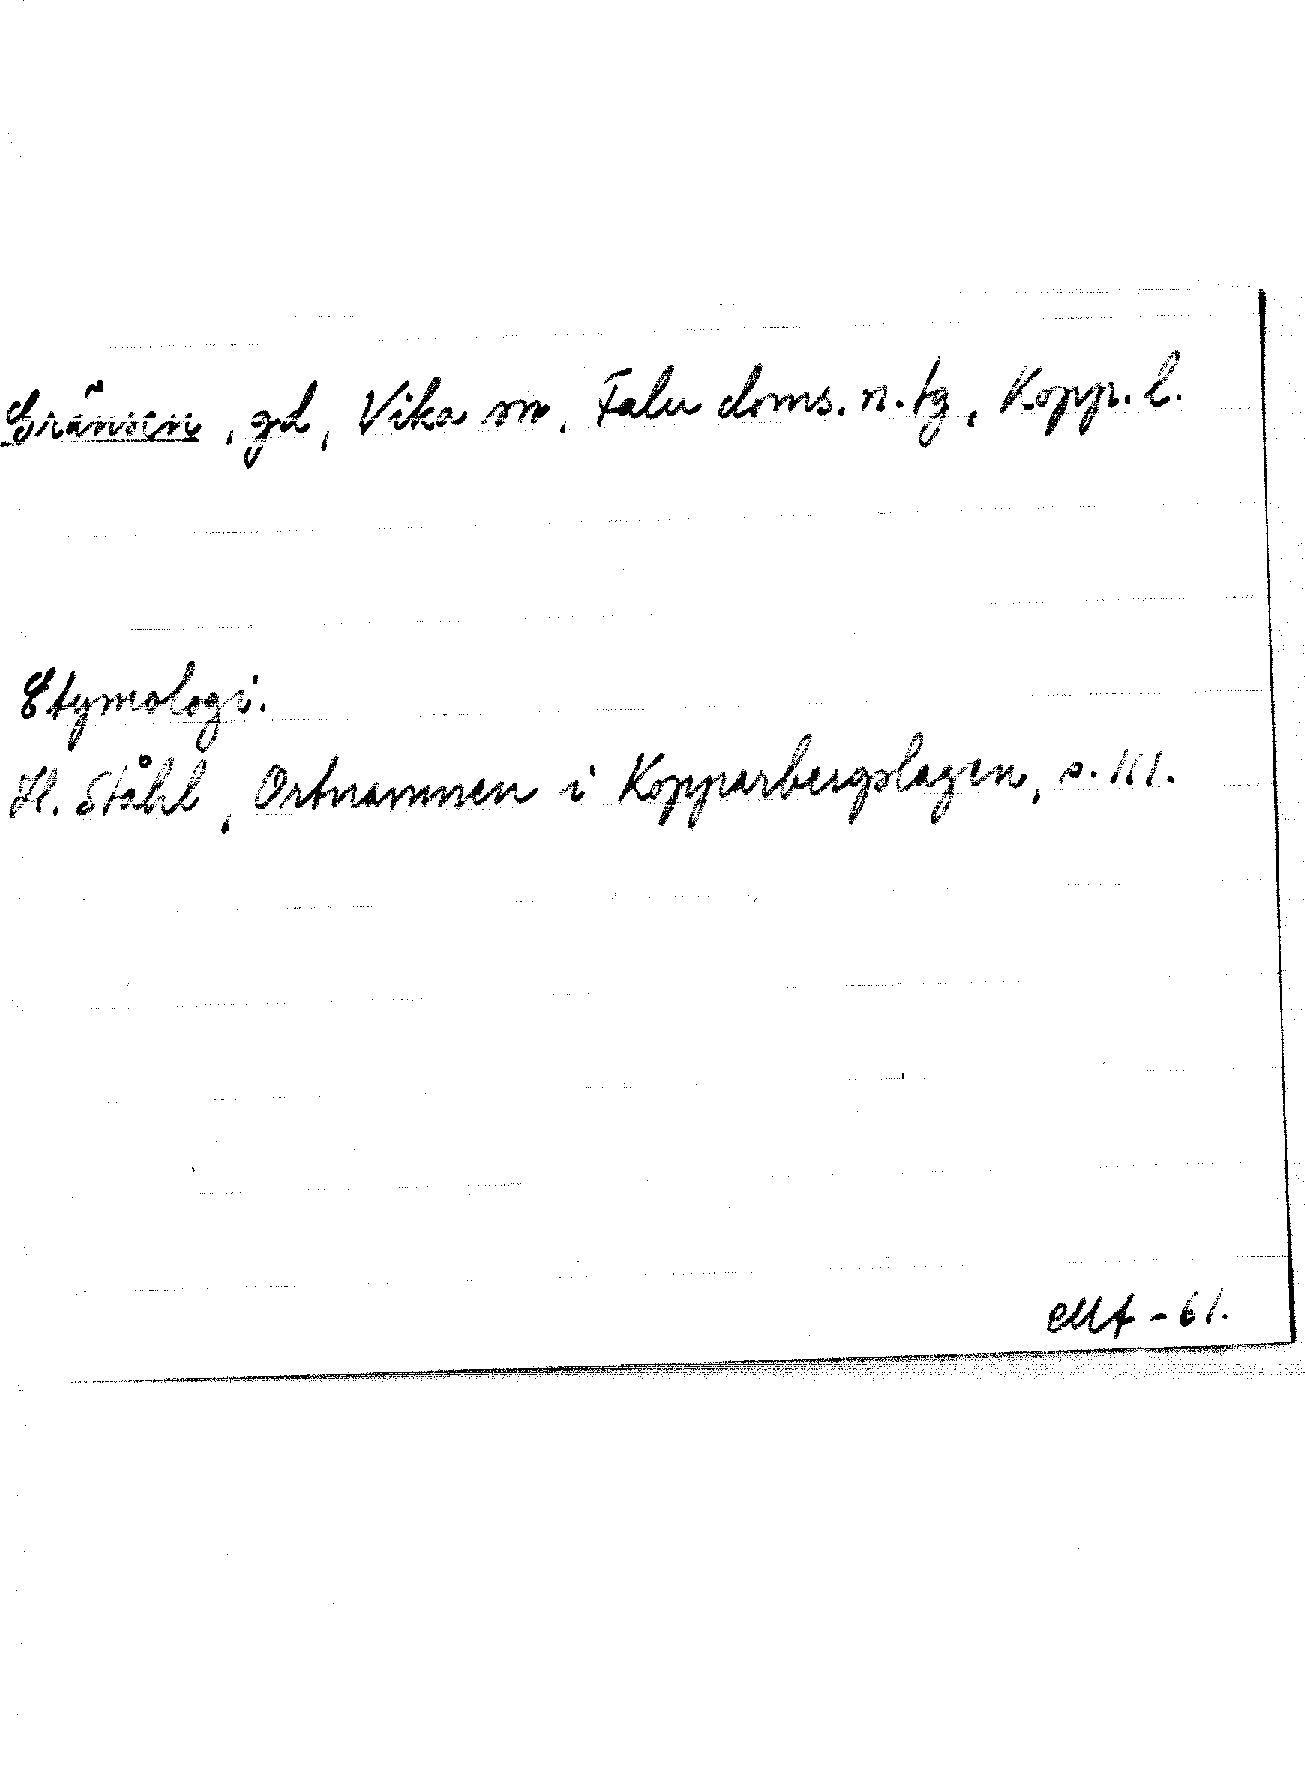 Gränsen, gd, Vika sn, Falu doms. n. tg, Kopp. l.
Etymologi.
H. Ståhl, Ortnamnen i Kopparbergslagen, s. 111.
MA - 61.